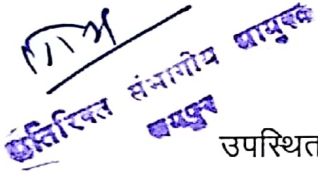 अतिरिक्त संभागीय आयुक्त
जयपुर
उपस्थित